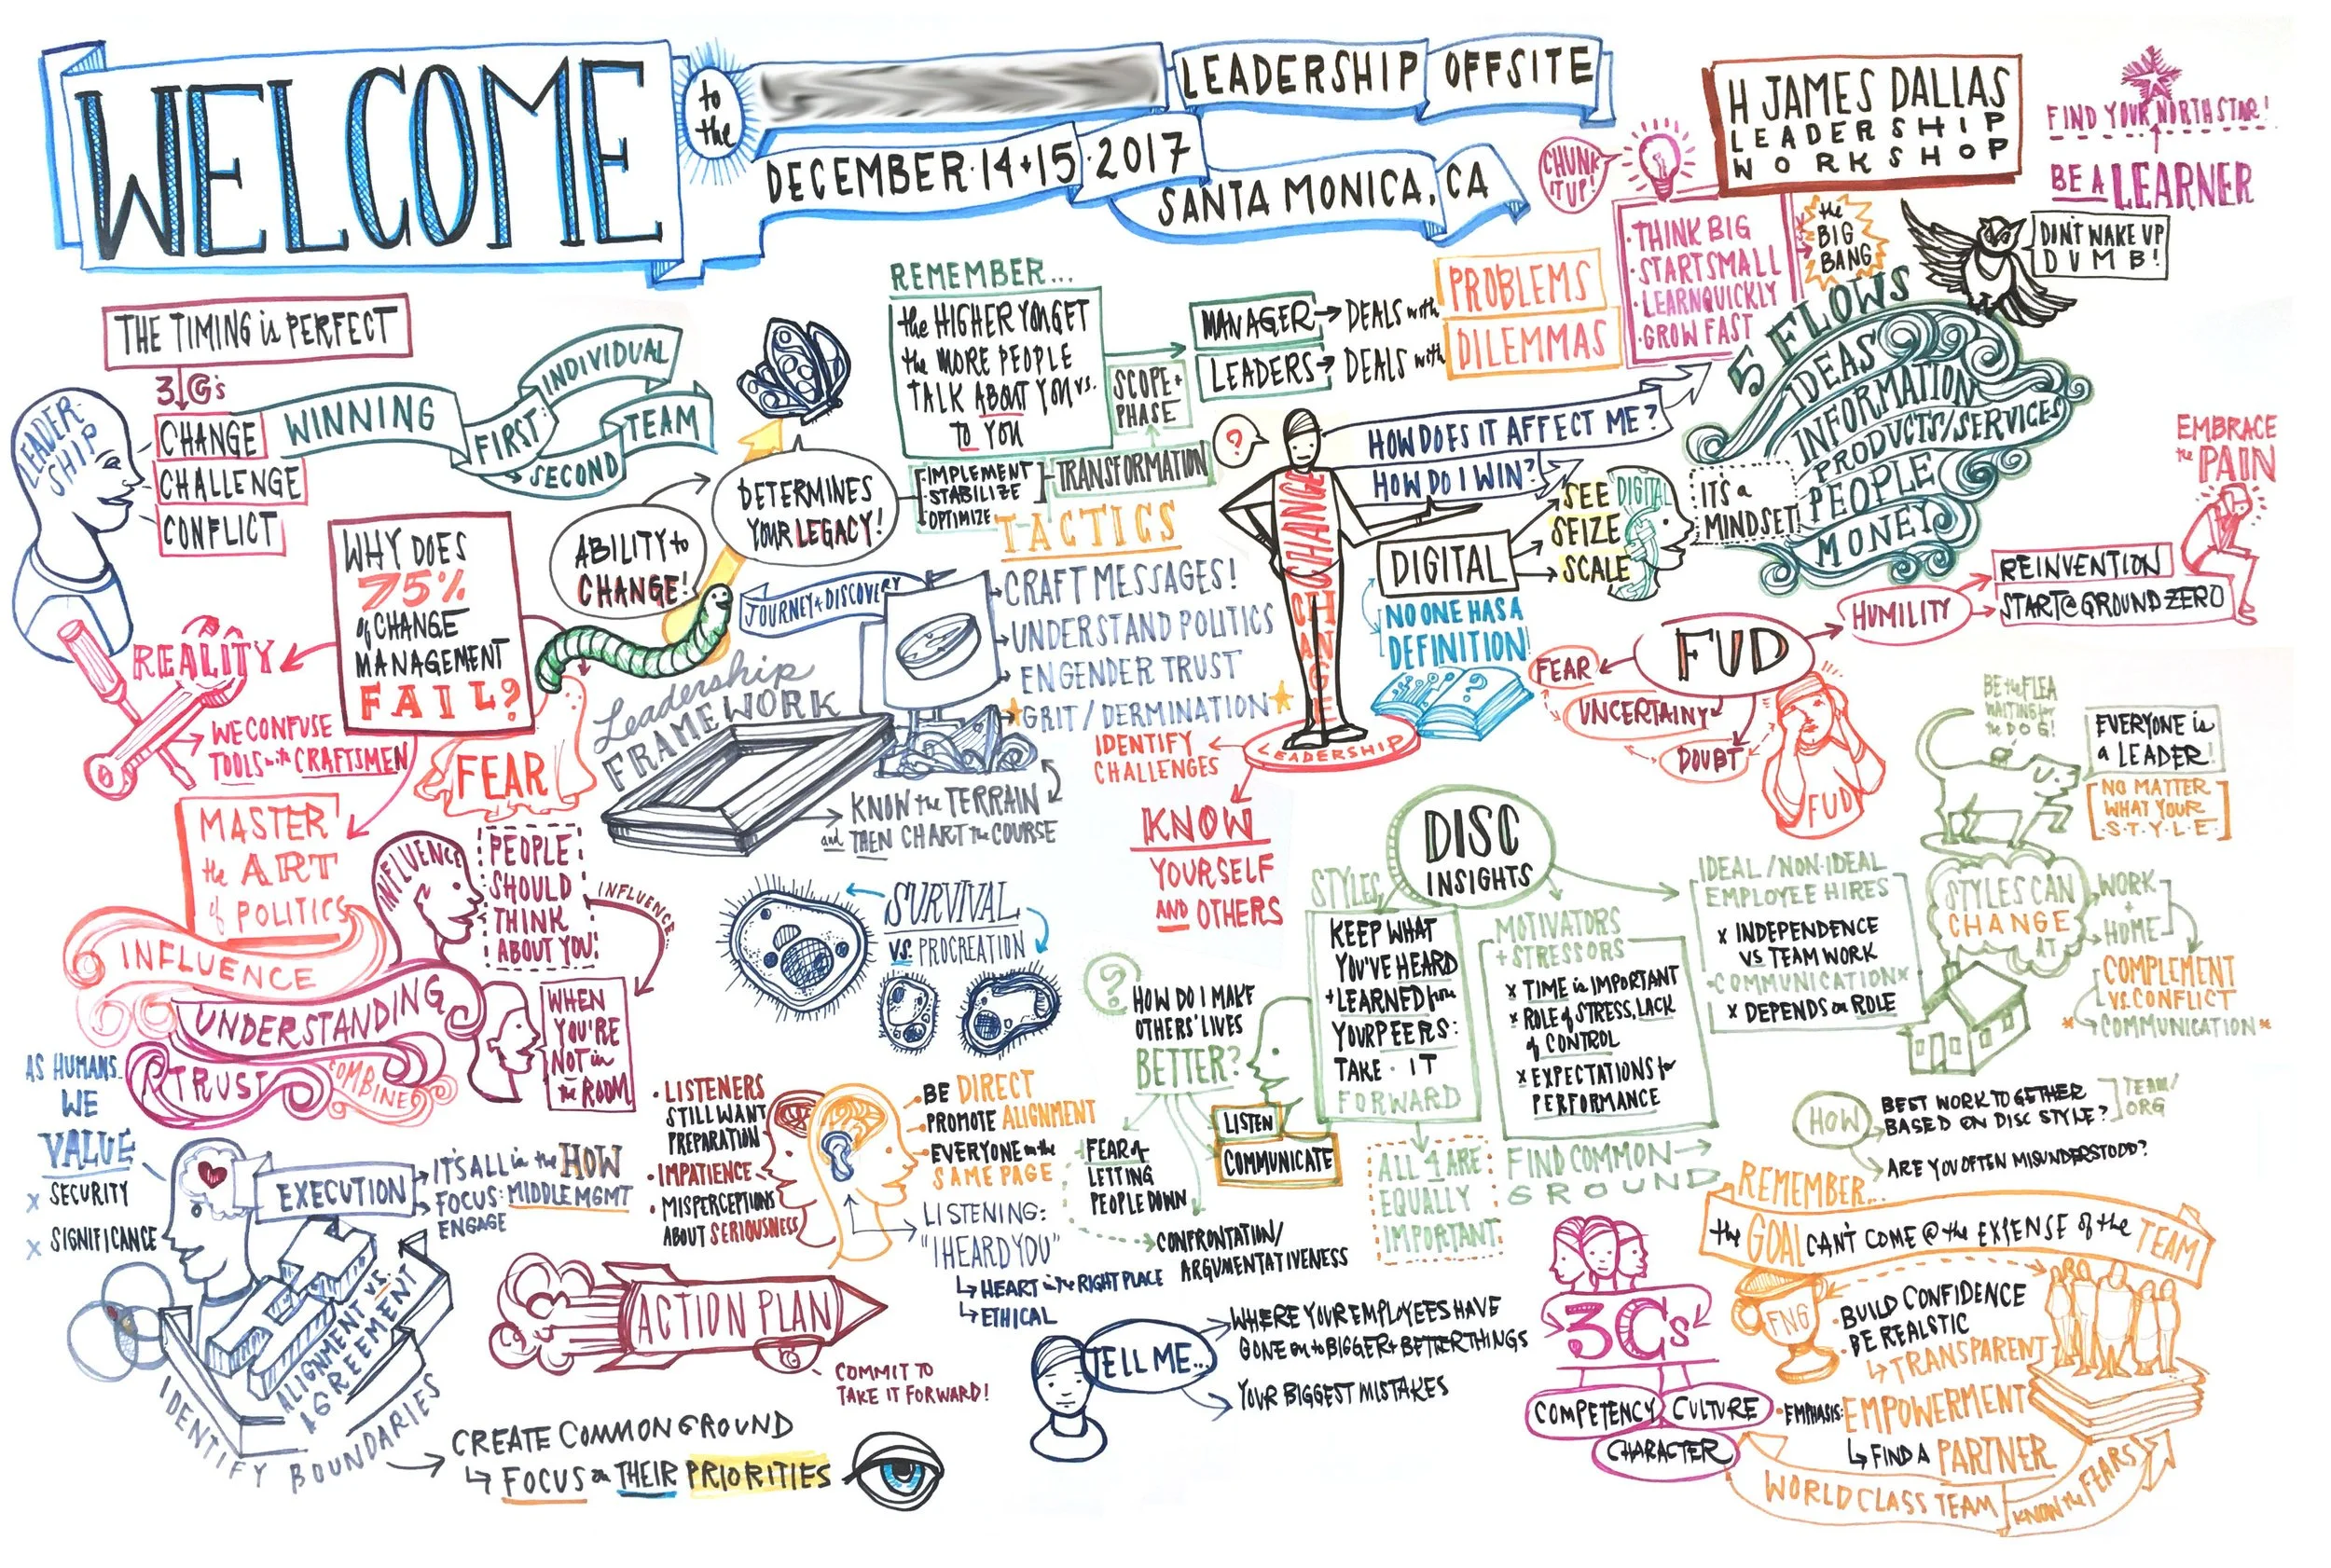 WELCOME
to
the
LEADERSHIP OFFSITE
DECEMBER·14+15·2017
SANTA MONICA, CA
H JAMES DALLAS
LEADERSHIP
WORKSHOP
FIND YOUR NORTH STAR!
BE A LEARNER
CHUNK
IT UP!
·THINK BIG
·START SMALL
·LEARN QUICKLY
·GROW FAST
the
BIG
BANG
DON'T WAKE UP
DUMB!
5 FLOWS
IDEAS
INFORMATION
PRODUCTS/SERVICES
PEOPLE
MONEY
THE TIMING is PERFECT
3 G's
LEADER-
SHIP
CHANGE
CHALLENGE
CONFLICT
WINNING
FIRST:
INDIVIDUAL
SECOND
TEAM
REMEMBER...
the HIGHER YOU GET
the MORE PEOPLE
TALK ABOUT YOU vs.
TO YOU
SCOPE+
PHASE
MANAGER→DEALS with
PROBLEMS
LEADERS→DEALS with
DILEMMAS
·IMPLEMENT
·STABILIZE
·OPTIMIZE
TRANSFORMATION
ABILITY to
CHANGE!
DETERMINES
YOUR LEGACY!
JOURNEY+DISCOVERY
?
HOW DOES IT AFFECT ME?
HOW DO I WIN?
CHANGE
CHANGE
LEADERSHIP
DIGITAL
SEE
SEIZE
SCALE
DIGITAL
IT'S a
MINDSET!
NO ONE HAS A
DEFINITION!
?
EMBRACE
the PAIN
WHY DOES
75%
of CHANGE
MANAGEMENT
FAIL?
REALITY
WE CONFUSE
TOOLS with CRAFTSMEN
FEAR
Leadership
FRAMEWORK
TACTICS
CRAFT MESSAGES!
UNDERSTAND POLITICS
ENGENDER TRUST
GRIT/DERMINATION
KNOW the TERRAIN
and THEN CHART the COURSE
IDENTIFY
CHALLENGES
KNOW
YOURSELF
AND OTHERS
FUD
FEAR
UNCERTAINY
DOUBT
HUMILITY
REINVENTION
START@GROUND ZERO
FUD
BE the FLEA
WAITING for
the DOG!
EVERYONE is
a LEADER!
NO MATTER
WHAT YOUR
·S·T·Y·L·E·
MASTER
the ART
of POLITICS
INFLUENCE
UNDERSTANDING
TRUST
COMBINE
INFLUENCE
PEOPLE
SHOULD
THINK
ABOUT YOU!
INFLUENCE...
WHEN
YOU'RE
NOT in
the ROOM
SURVIVAL
VS. PROCREATION
DISC
INSIGHTS
STYLES
KEEP WHAT
YOU'VE HEARD
+LEARNED from
YOUR PEERS:
TAKE·IT
FORWARD
ALL 4 ARE
EQUALLY
IMPORTANT
MOTIVATORS
+STRESSORS
x TIME is IMPORTANT
x ROLE of STRESS, LACK
of CONTROL
x EXPECTATIONS for
PERFORMANCE
FIND COMMON
GROUND
IDEAL/NON-IDEAL
EMPLOYEE HIRES
x INDEPENDENCE
VS TEAM WORK
·COMMUNICATION x
x DEPENDS on ROLE
STYLES CAN
CHANGE
AT
WORK
+
HOME
COMPLEMENT
VS. CONFLICT
*COMMUNICATION*
HOW
BEST WORK TOGETHER
BASED ON DISC STYLE?
TEAM/
ORG
ARE YOU OFTEN MISUNDERSTOOD?
?
HOW DO I MAKE
OTHERS' LIVES
BETTER?
LISTEN
COMMUNICATE
FEAR of
LETTING
PEOPLE DOWN
CONFRONTATION/
ARGUMENTATIVENESS
AS HUMANS
WE
VALUE
x SECURITY
x SIGNIFICANCE
EXECUTION
IT'S ALL in the HOW
FOCUS: MIDDLE MGMT
ENGAGE
ALIGNMENT VS.
AGREEMENT
IDENTIFY BOUNDARIES
CREATE COMMON GROUND
FOCUS on THEIR PRIORITIES
·LISTENERS
STILL WANT
PREPARATION
·IMPATIENCE
·MISPERCEPTIONS
ABOUT SERIOUSNESS
BE DIRECT
PROMOTE ALIGNMENT
EVERYONE on the
SAME PAGE
LISTENING:
"I HEARD YOU"
HEART in the RIGHT PLACE
ETHICAL
ACTION PLAN
COMMIT TO
TAKE IT FORWARD!
TELL ME...
WHERE YOUR EMPLOYEES HAVE
GONE on to BIGGER+BETTER THINGS
YOUR BIGGEST MISTAKES
3Cs
COMPETENCY
CULTURE
CHARACTER
REMEMBER...
the GOAL CAN'T COME @ the EXPENSE of the TEAM
FNG
·BUILD CONFIDENCE
·BE REALSTIC
TRANSPARENT
·EMPHASIS: EMPOWERMENT
FIND A PARTNER
WORLD CLASS TEAM
KNOW the FEARS